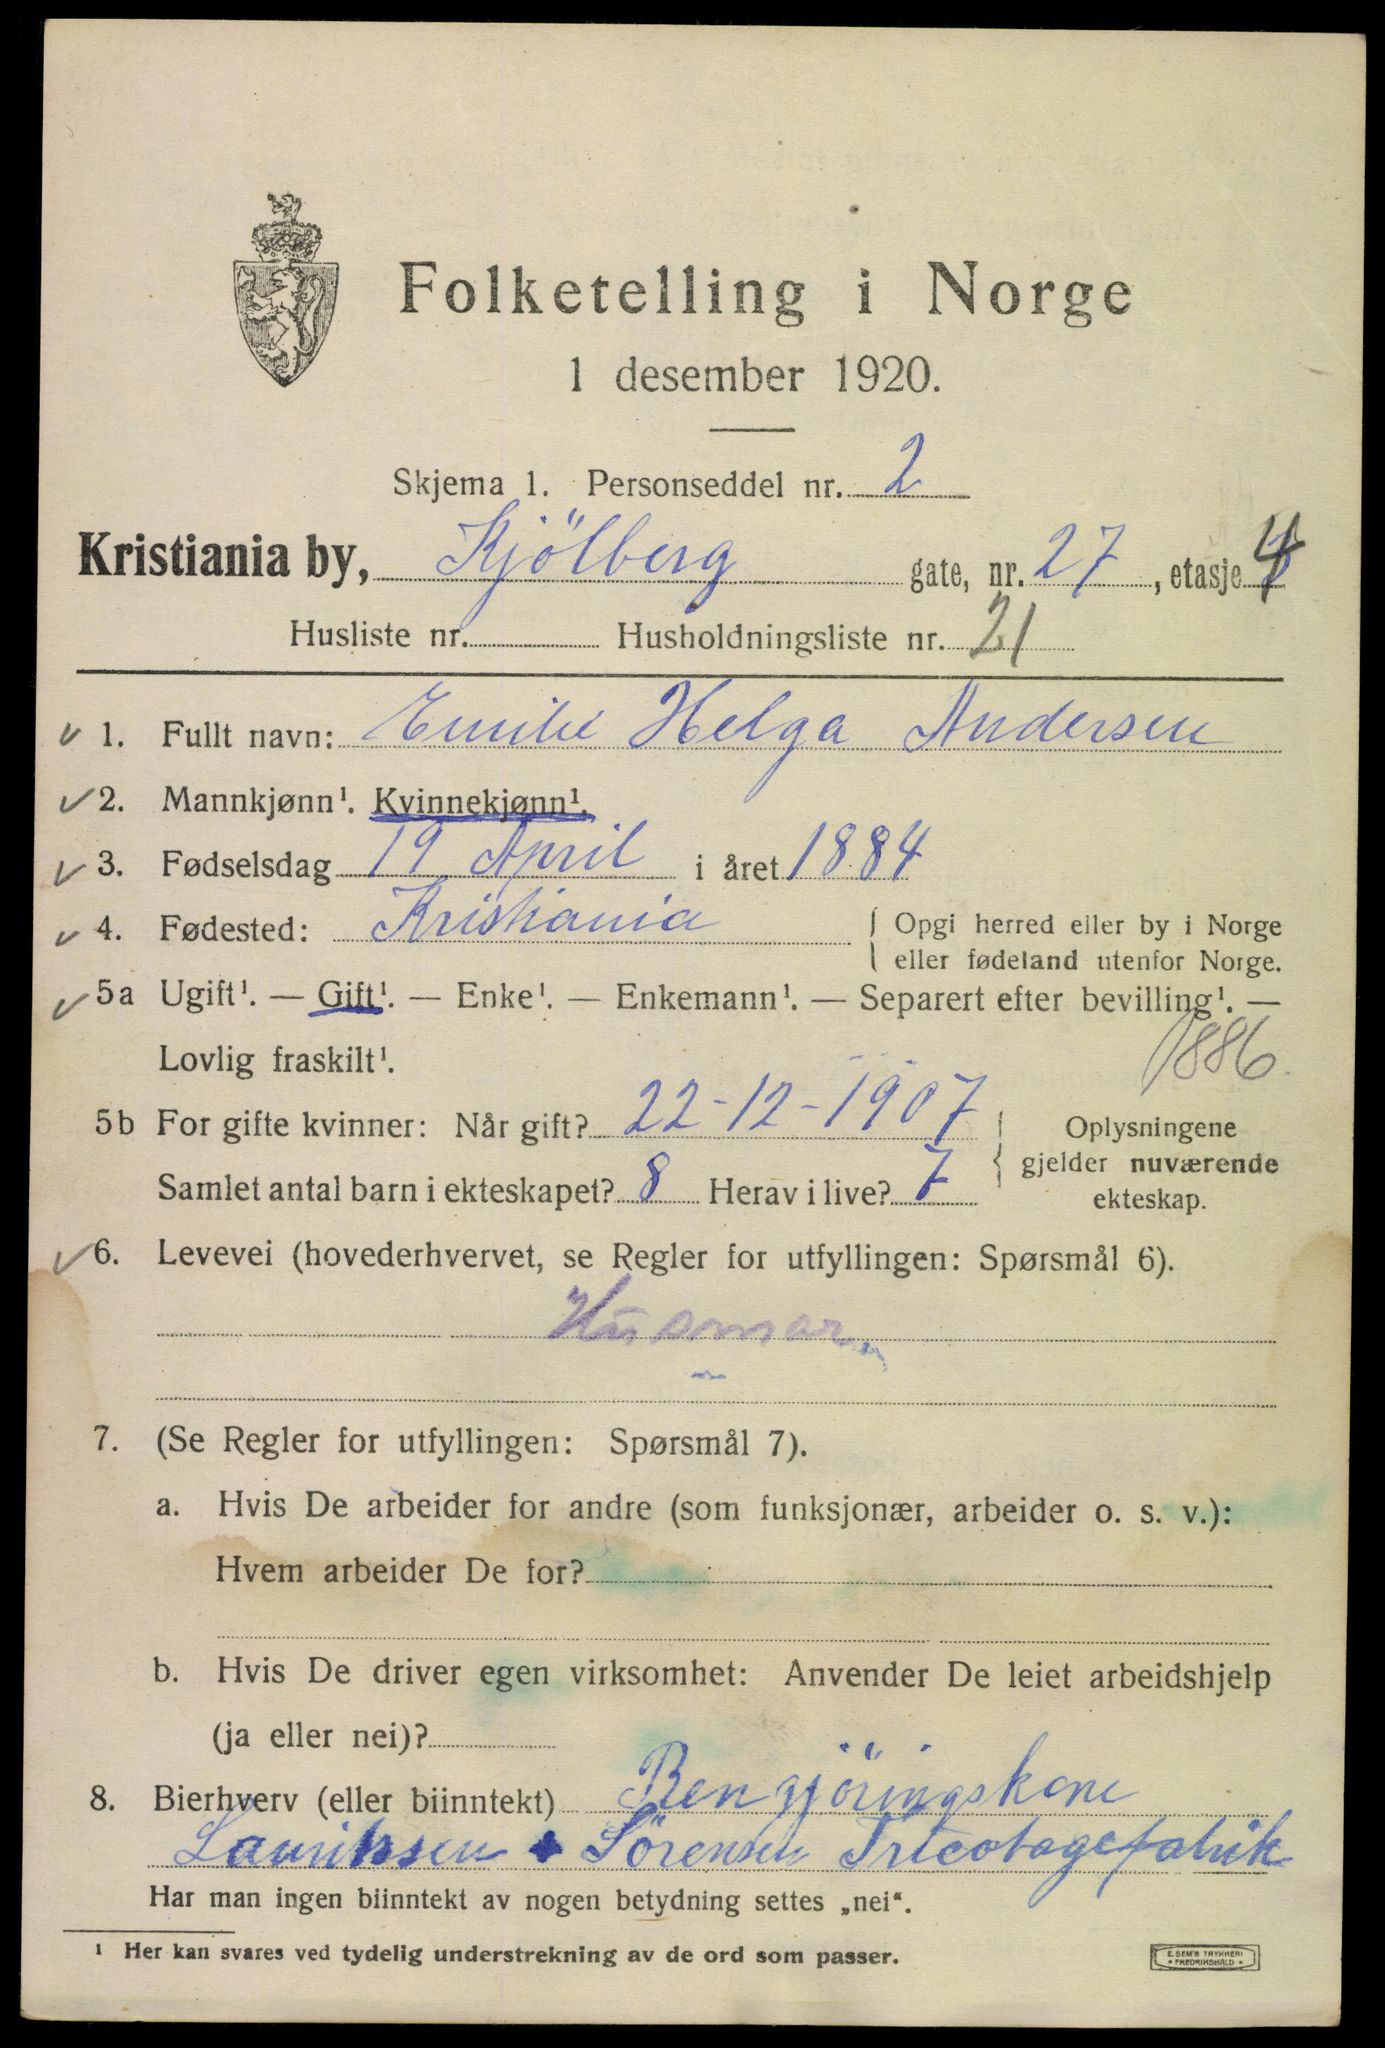 Folketelling i Norge
1 desember 1920.
Skjema 1. Personseddel nr. 2
Kristiania by, Kjölberg gate, nr. 27, etasje 4
Husliste nr. Husholdningsliste nr. 21
✓ 1. Fullt navn: Emilie Helga Andersen
✓ 2. Mannkjønn¹. Kvinnekjønn¹.
✓ 3. Fødselsdag 19 April i året 1884
✓ 4. Fødested: Kristiania { Opgi herred eller by i Norge
eller fødeland utenfor Norge.
✓ 5a Ugift¹. — Gift¹. — Enke¹. — Enkemann¹. — Separert efter bevilling¹. —
Lovlig fraskilt¹. 1886.
5b For gifte kvinner: Når gift? 22-12-1907
Samlet antal barn i ekteskapet? 8 Herav i live? 7
Oplysningene
gjelder nuværende
ekteskap.
✓ 6. Levevei (hovederhvervet, se Regler for utfyllingen: Spørsmål 6).
Husmor
7. (Se Regler for utfyllingen: Spørsmål 7).
a. Hvis De arbeider for andre (som funksjonær, arbeider o. s. v.):
Hvem arbeider De for?
b. Hvis De driver egen virksomhet: Anvender De leiet arbeidshjelp
(ja eller nei)?
8. Bierhverv (eller biinntekt) Rengjöringskone
Lauritsen + Sörensen Tricotagefabrik
Har man ingen biinntekt av nogen betydning settes „nei“.
¹ Her kan svares ved tydelig understrekning av de ord som passer.
E. SEM'S TRYKKERI
FREDRIKSHALD